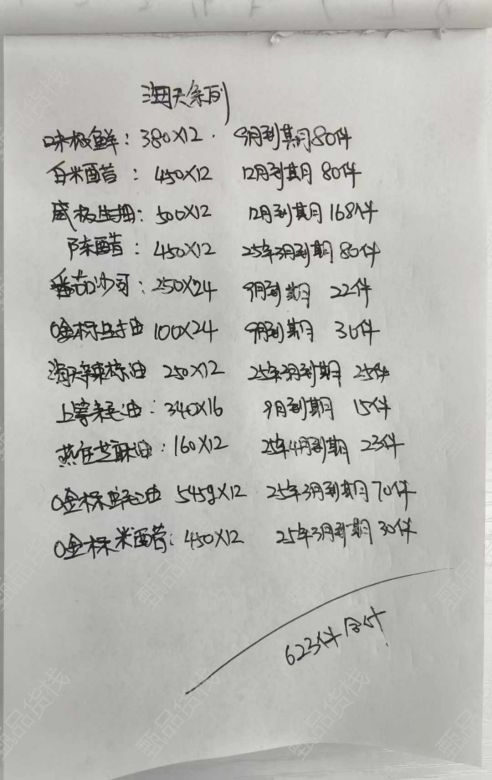 海天系列
味极鲜：380X12. 9月到期 80件
白米醋：450X12 12月到期 80件
威极生抽：500X12 12月到期 168件
陈醋：450X12 25年3月到期 80件
番茄沙司：250X24 9月到期 22件
0金标生抽 100X24 9月到期 30件
海天辣椒油 250X12 25年3月到期 25件
上等蚝油：340X16 9月到期 15件
：160X12 25年4月到期 23件
0金标蚝油 545g X12 25年3月到期 70件
0金标米醋：450X12 25年3月到期 30件
623件合计
甄品货栈